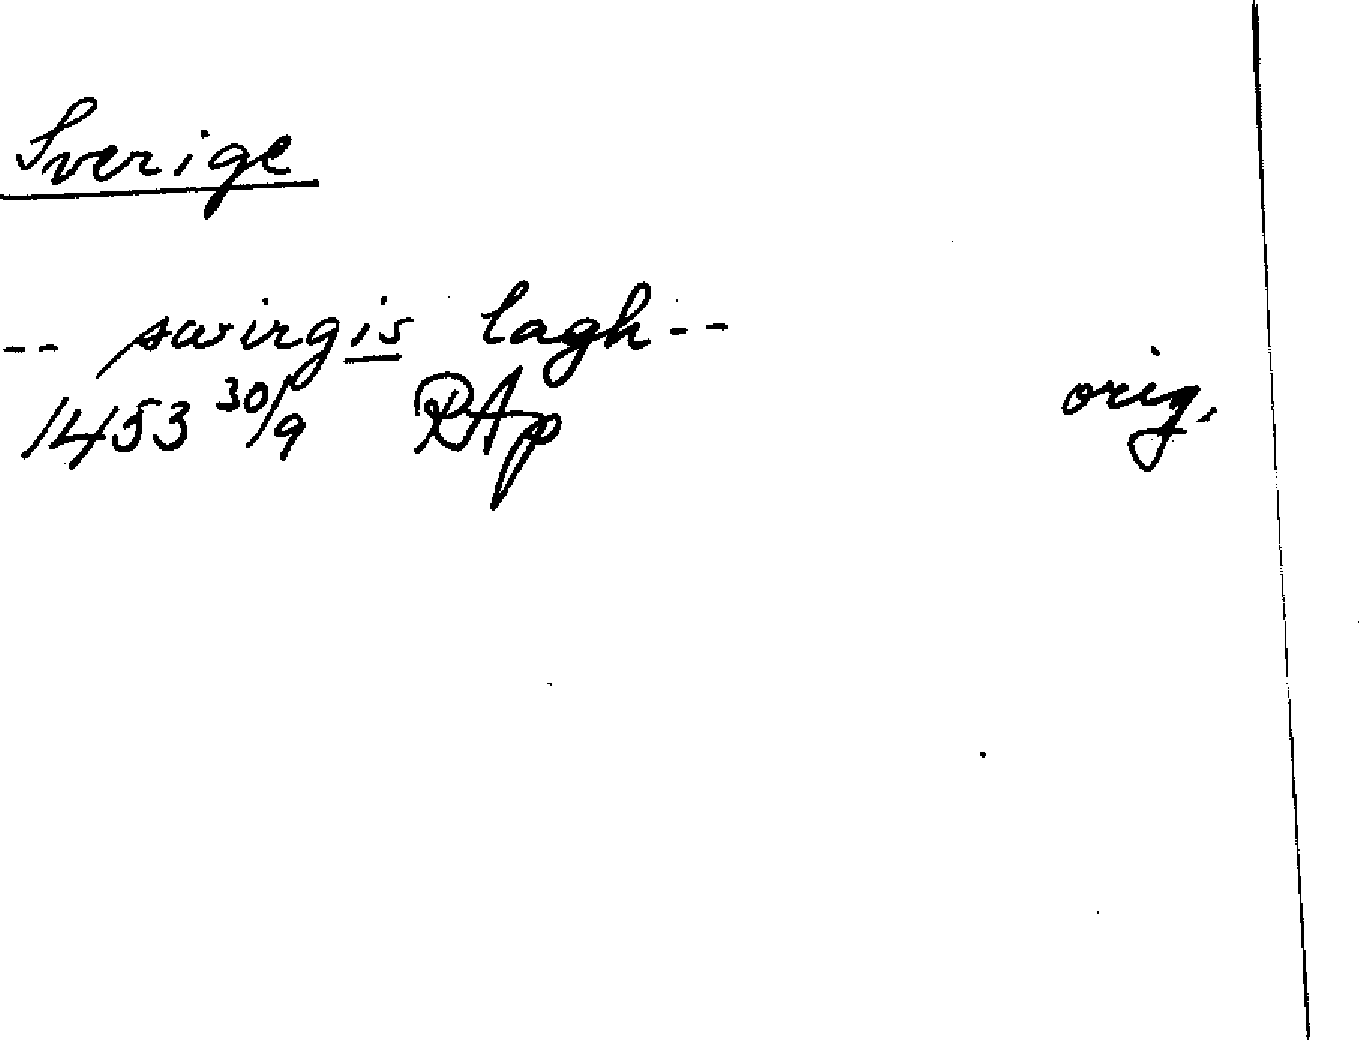 Sverige
-- swirgis lagh --
1453 30/9 RAp orig.